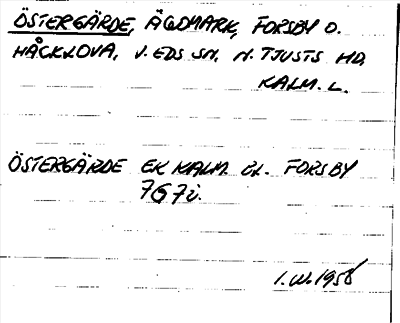 ÖSTERGÄRDE, ÄGOMARK, FORSBY O.
HÅCKLÖVA, V. EDS SN, N. TJUSTS HD
KALM. L.
ÖSTERGÄRDE EK KALM. BL. FORSBY
7G7i.
1.III.1958